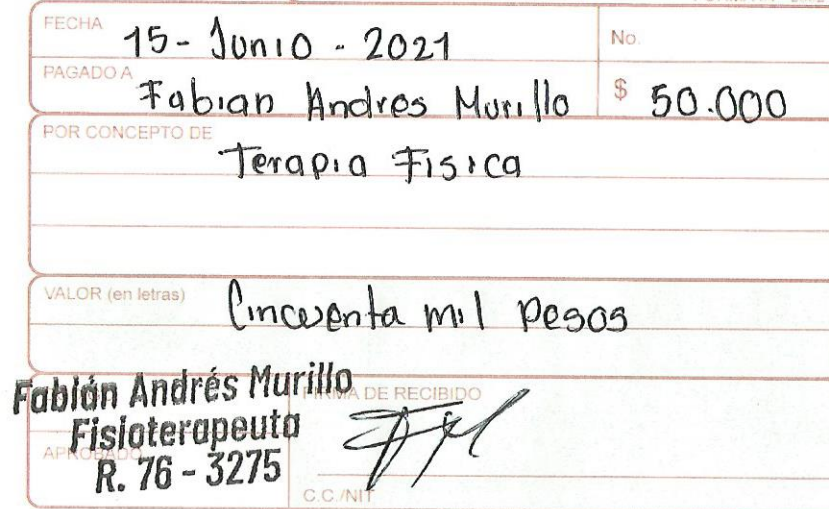 FECHA 15 - Junio - 2021 No.
PAGADO A Fabian Andres Murillo $ 50.000
POR CONCEPTO DE Terapia Fisica
VALOR (en letras) Cincuenta mil pesos
Fabián Andrés Murillo
FIRMA DE RECIBIDO
Fisioterapeuta
APROBADO
R. 76 - 3275
C.C./NIT